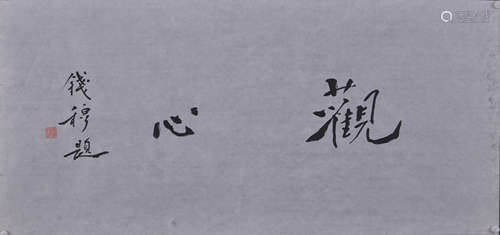 觀心
錢穆題